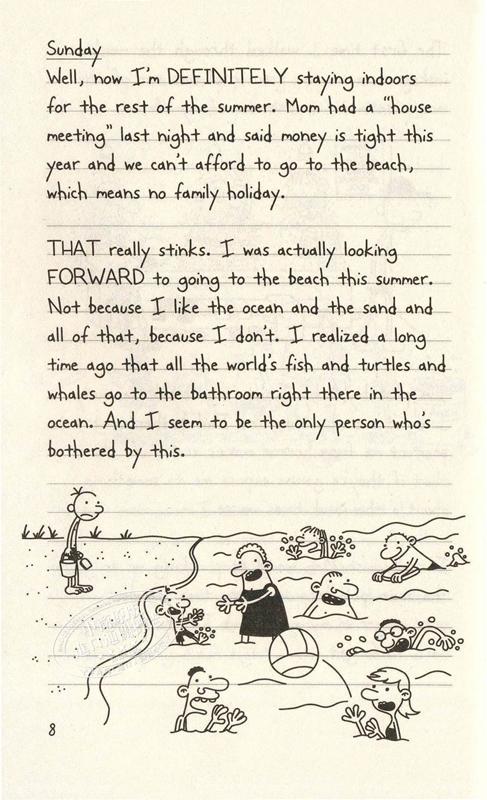 Sunday
Well, now I'm DEFINITELY staying indoors
for the rest of the summer. Mom had a "house
meeting" last night and said money is tight this
year and we can't afford to go to the beach,
which means no family holiday.
THAT really stinks. I was actually looking
FORWARD to going to the beach this summer.
Not because I like the ocean and the sand and
all of that, because I don't. I realized a long
time ago that all the world's fish and turtles and
whales go to the bathroom right there in the
ocean. And I seem to be the only person who's
bothered by this.
8